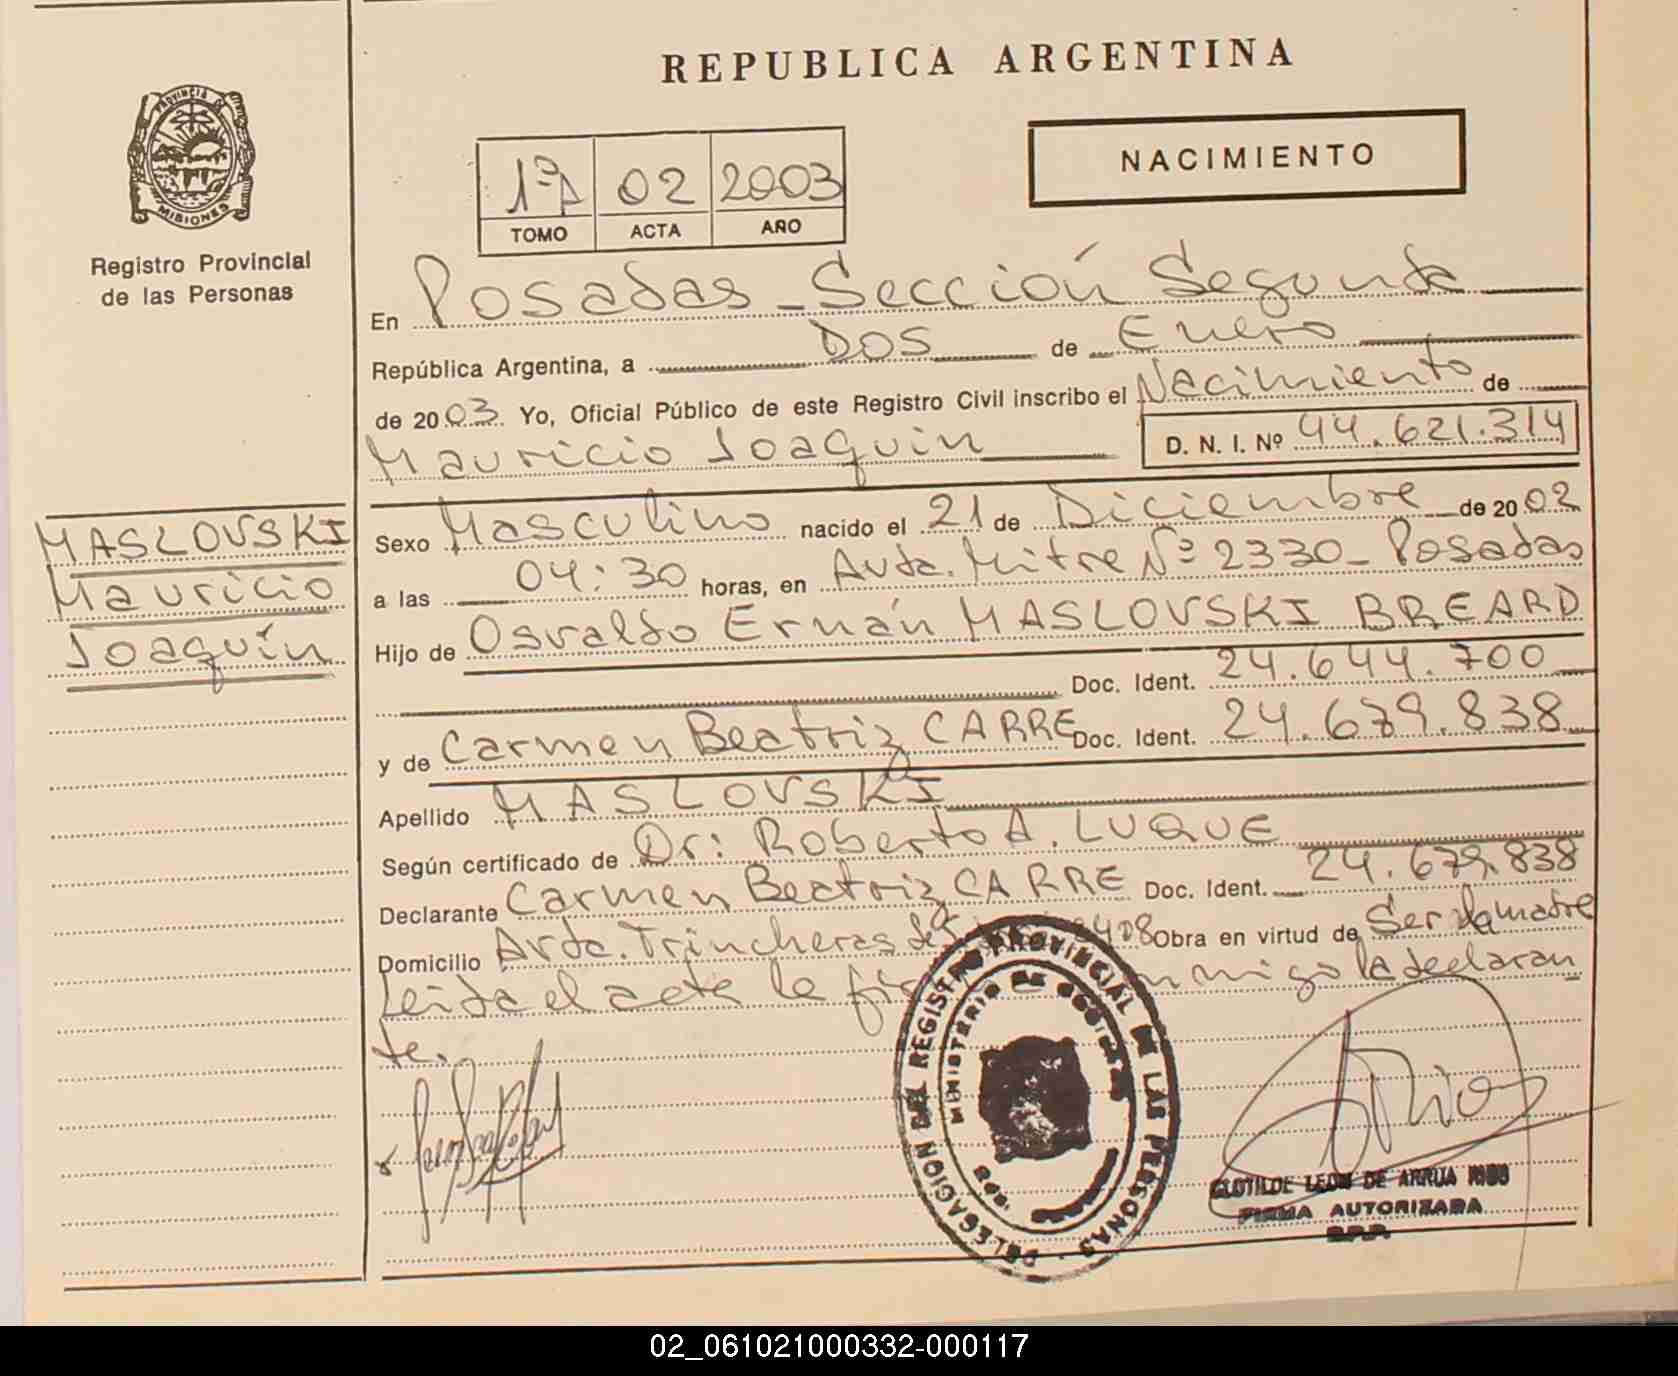 REPUBLICA ARGENTINA
PROVINCIA DE
MISIONES
Registro Provincial
de las Personas
NACIMIENTO
1ºA 02 2003
TOMO ACTA AÑO
En Posadas - Sección Segunda
República Argentina, a DOS de Enero
de 2003 Yo, Oficial Público de este Registro Civil inscribo el Nacimiento de
Mauricio Joaquin D. N. I. Nº 44.621.314
MASLOVSKI
Mauricio
Joaquín
Sexo Masculino nacido el 21 de Diciembre de 2002
a las 04:30 horas, en Avda. Mitre Nº 2330 - Posadas
Hijo de Osvaldo Ernán MASLOVSKI BREARD
Doc. Ident. 24.644.700
y de Carmen Beatriz CARRE Doc. Ident. 24.679.838
Apellido MASLOVSKI
Según certificado de Dr: Roberto A. LUQUE
Declarante Carmen Beatriz CARRE Doc. Ident. 24.679.838
Domicilio Avda. Trincheras de Obra en virtud de Ser la madre
Leida el acta la conmigo la declaran
te.
DELEGACION DEL REGISTRO PROVINCIAL DE LAS PERSONAS
MINISTERIO DE
CLOTILDE LEON DE ARRUA RIOS
FIRMA AUTORIZADA
02_061021000332-000117